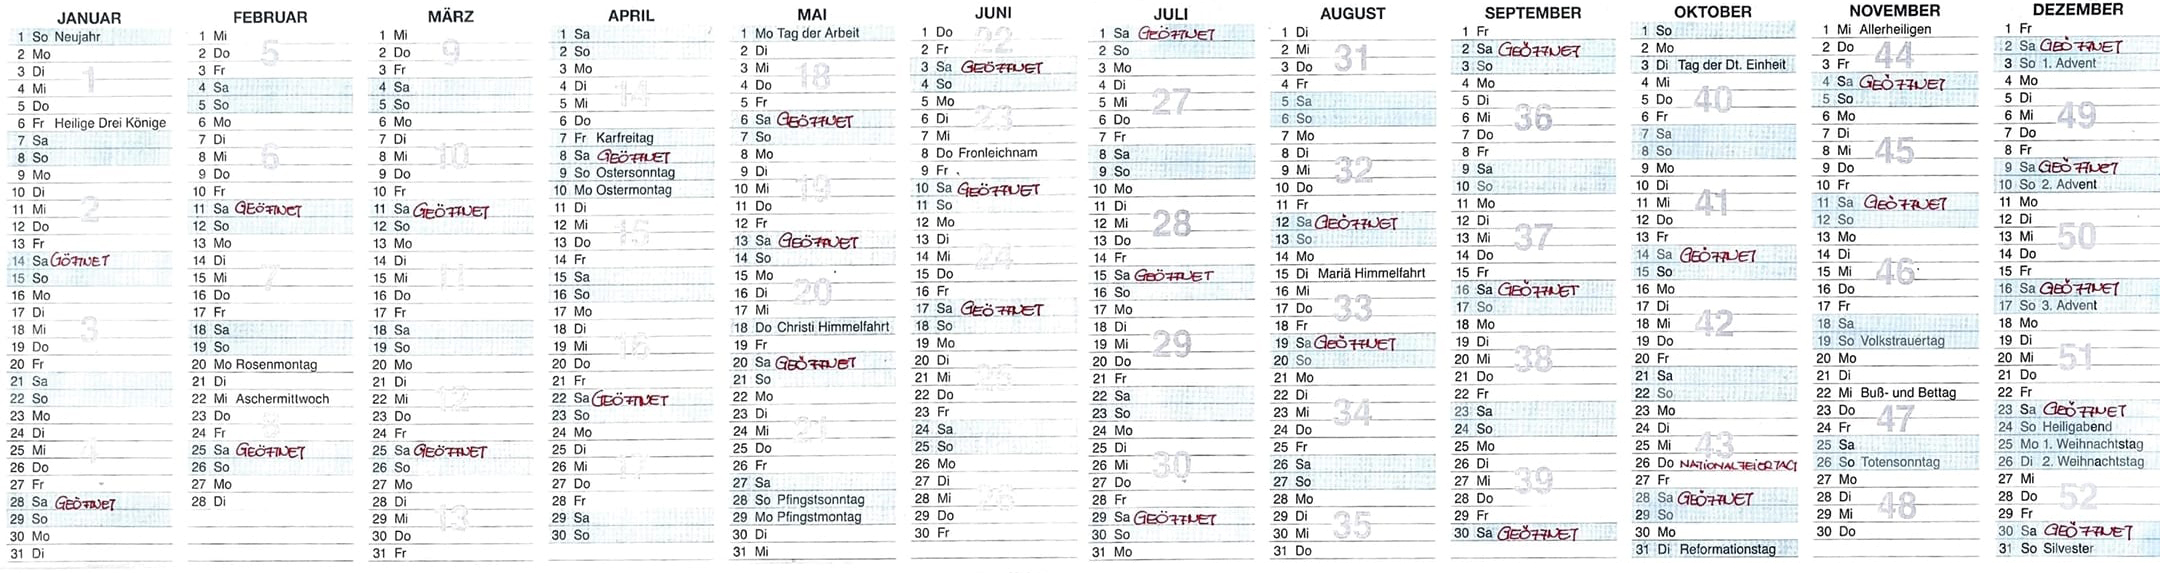 JANUAR
1 So Neujahr
2 Mo
3 Di
1
4 Mi
5 Do
6 Fr Heilige Drei Könige
7 Sa
8 So
9 Mo
10 Di
11 Mi
2
12 Do
13 Fr
14 Sa GÖFFNET
15 So
16 Mo
17 Di
18 Mi
3
19 Do
20 Fr
21 Sa
22 So
23 Mo
24 Di
25 Mi
4
26 Do
27 Fr
28 Sa GEÖFFNET
29 So
30 Mo
31 Di
FEBRUAR
1 Mi
2 Do
5
3 Fr
4 Sa
5 So
6 Mo
7 Di
8 Mi
6
9 Do
10 Fr
11 Sa GEÖFFNET
12 So
13 Mo
14 Di
15 Mi
7
16 Do
17 Fr
18 Sa
19 So
20 Mo Rosenmontag
21 Di
22 Mi Aschermittwoch
23 Do
8
24 Fr
25 Sa GEÖFFNET
26 So
27 Mo
28 Di
MÄRZ
1 Mi
2 Do
9
3 Fr
4 Sa
5 So
6 Mo
7 Di
8 Mi
10
9 Do
10 Fr
11 Sa GEÖFFNET
12 So
13 Mo
14 Di
15 Mi
11
16 Do
17 Fr
18 Sa
19 So
20 Mo
21 Di
22 Mi
12
23 Do
24 Fr
25 Sa GEÖFFNET
26 So
27 Mo
28 Di
29 Mi
13
30 Do
31 Fr
APRIL
1 Sa
2 So
3 Mo
4 Di
14
5 Mi
6 Do
7 Fr Karfreitag
8 Sa GEÖFFNET
9 So Ostersonntag
10 Mo Ostermontag
11 Di
12 Mi
15
13 Do
14 Fr
15 Sa
16 So
17 Mo
18 Di
19 Mi
16
20 Do
21 Fr
22 Sa GEÖFFNET
23 So
24 Mo
25 Di
26 Mi
17
27 Do
28 Fr
29 Sa
30 So
MAI
1 Mo Tag der Arbeit
2 Di
3 Mi
18
4 Do
5 Fr
6 Sa GEÖFFNET
7 So
8 Mo
9 Di
10 Mi
19
11 Do
12 Fr
13 Sa GEÖFFNET
14 So
15 Mo
16 Di
20
17 Mi
18 Do Christi Himmelfahrt
19 Fr
20 Sa GEÖFFNET
21 So
22 Mo
23 Di
24 Mi
21
25 Do
26 Fr
27 Sa
28 So Pfingstsonntag
29 Mo Pfingstmontag
30 Di
31 Mi
JUNI
1 Do
22
2 Fr
3 Sa GEÖFFNET
4 So
5 Mo
6 Di
23
7 Mi
8 Do Fronleichnam
9 Fr
10 Sa GEÖFFNET
11 So
12 Mo
13 Di
14 Mi
24
15 Do
16 Fr
17 Sa GEÖFFNET
18 So
19 Mo
20 Di
21 Mi
25
22 Do
23 Fr
24 Sa
25 So
26 Mo
27 Di
28 Mi
26
29 Do
30 Fr
JULI
1 Sa GEÖFFNET
2 So
3 Mo
4 Di
5 Mi
27
6 Do
7 Fr
8 Sa
9 So
10 Mo
11 Di
12 Mi
28
13 Do
14 Fr
15 Sa GEÖFFNET
16 So
17 Mo
18 Di
19 Mi
29
20 Do
21 Fr
22 Sa
23 So
24 Mo
25 Di
26 Mi
30
27 Do
28 Fr
29 Sa GEÖFFNET
30 So
31 Mo
AUGUST
1 Di
2 Mi
31
3 Do
4 Fr
5 Sa
6 So
7 Mo
8 Di
9 Mi
32
10 Do
11 Fr
12 Sa GEÖFFNET
13 So
14 Mo
15 Di Mariä Himmelfahrt
16 Mi
33
17 Do
18 Fr
19 Sa GEÖFFNET
20 So
21 Mo
22 Di
23 Mi
34
24 Do
25 Fr
26 Sa
27 So
28 Mo
29 Di
35
30 Mi
31 Do
SEPTEMBER
1 Fr
2 Sa GEÖFFNET
3 So
4 Mo
5 Di
6 Mi
36
7 Do
8 Fr
9 Sa
10 So
11 Mo
12 Di
13 Mi
37
14 Do
15 Fr
16 Sa GEÖFFNET
17 So
18 Mo
19 Di
20 Mi
38
21 Do
22 Fr
23 Sa
24 So
25 Mo
26 Di
27 Mi
39
28 Do
29 Fr
30 Sa GEÖFFNET
OKTOBER
1 So
2 Mo
3 Di Tag der Dt. Einheit
4 Mi
40
5 Do
6 Fr
7 Sa
8 So
9 Mo
10 Di
11 Mi
41
12 Do
13 Fr
14 Sa GEÖFFNET
15 So
16 Mo
17 Di
18 Mi
42
19 Do
20 Fr
21 Sa
22 So
23 Mo
24 Di
25 Mi
43
26 Do NATIONALFEIERTAG
27 Fr
28 Sa GEÖFFNET
29 So
30 Mo
31 Di Reformationstag
NOVEMBER
1 Mi Allerheiligen
2 Do
44
3 Fr
4 Sa GEÖFFNET
5 So
6 Mo
7 Di
8 Mi
45
9 Do
10 Fr
11 Sa GEÖFFNET
12 So
13 Mo
14 Di
15 Mi
46
16 Do
17 Fr
18 Sa
19 So Volkstrauertag
20 Mo
21 Di
22 Mi Buß- und Bettag
23 Do
47
24 Fr
25 Sa
26 So Totensonntag
27 Mo
28 Di
48
29 Mi
30 Do
DEZEMBER
1 Fr
2 Sa GEÖFFNET
3 So 1. Advent
4 Mo
5 Di
6 Mi
49
7 Do
8 Fr
9 Sa GEÖFFNET
10 So 2. Advent
11 Mo
12 Di
13 Mi
50
14 Do
15 Fr
16 Sa GEÖFFNET
17 So 3. Advent
18 Mo
19 Di
20 Mi
51
21 Do
22 Fr
23 Sa GEÖFFNET
24 So Heiligabend
25 Mo 1. Weihnachtstag
26 Di 2. Weihnachtstag
27 Mi
28 Do
52
29 Fr
30 Sa GEÖFFNET
31 So Silvester